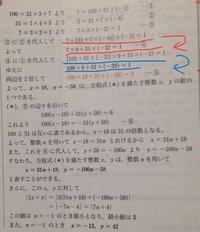 100=31×3+7 より 7=100+31×(-3) …①
31=7×4+3 より 3=31+7×(-4) …②
7=3×2+1 より 7+3×(-2)=1 …③
③に②を代入して 7+{31+7×(-4)}×(-2)=1
よって 7×9+31×(-2)=1 …④
④に①を代入して {100+31×(-3)}×9+31×(-2)=1
ゆえに 100×9+31×(-29)=1
両辺を2倍して 100×18+31×(-58)=2 …⑤
よって，x=18, y=-58 は，方程式(*)を満たす整数 x, y の組の
1つである。
(*), ⑤の辺々を引いて
100(x-18)+31(y+58)=0
これより 100(x-18)=-31(y+58) …⑥
100と31は互いに素であるから，x-18は31の倍数となる。
よって，整数 n を用いて x-18=31n とおけるから x=31n+18
また，これを⑥に代入して，y+58=-100n から y=-100n-58
すなわち，方程式(*)を満たす整数 x, y は，整数 n を用いて
x=31n+18, y=-100n-58
と表すことができる。
さらに，この x, y に対して
|3x+y|=|3(31n+18)+(-100n-58)|
=|-7n-4|=|7n+4|
この値は n=-1 のとき最小となり，最小値は 3
また，n=-1 のとき x=-13, y=42